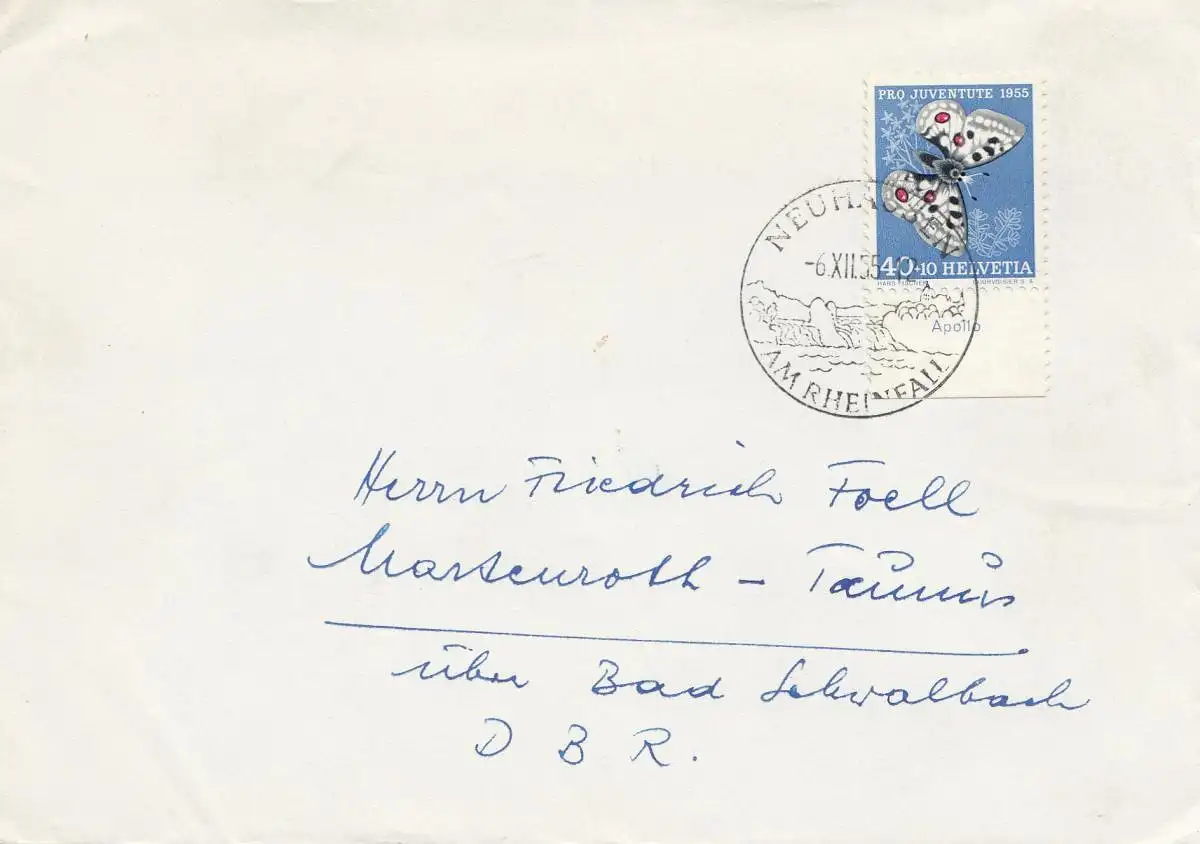 PRO JUVENTUTE 1955
40+10 HELVETIA
HANS FISCHER COURVOISIER S.A.
Apollo
NEUHAUSEN
-6.XII.55-12
AM RHEINFALL
Herrn Friedrich Foell
Martenroth - Taunus
über Bad Schwalbach
D B R.